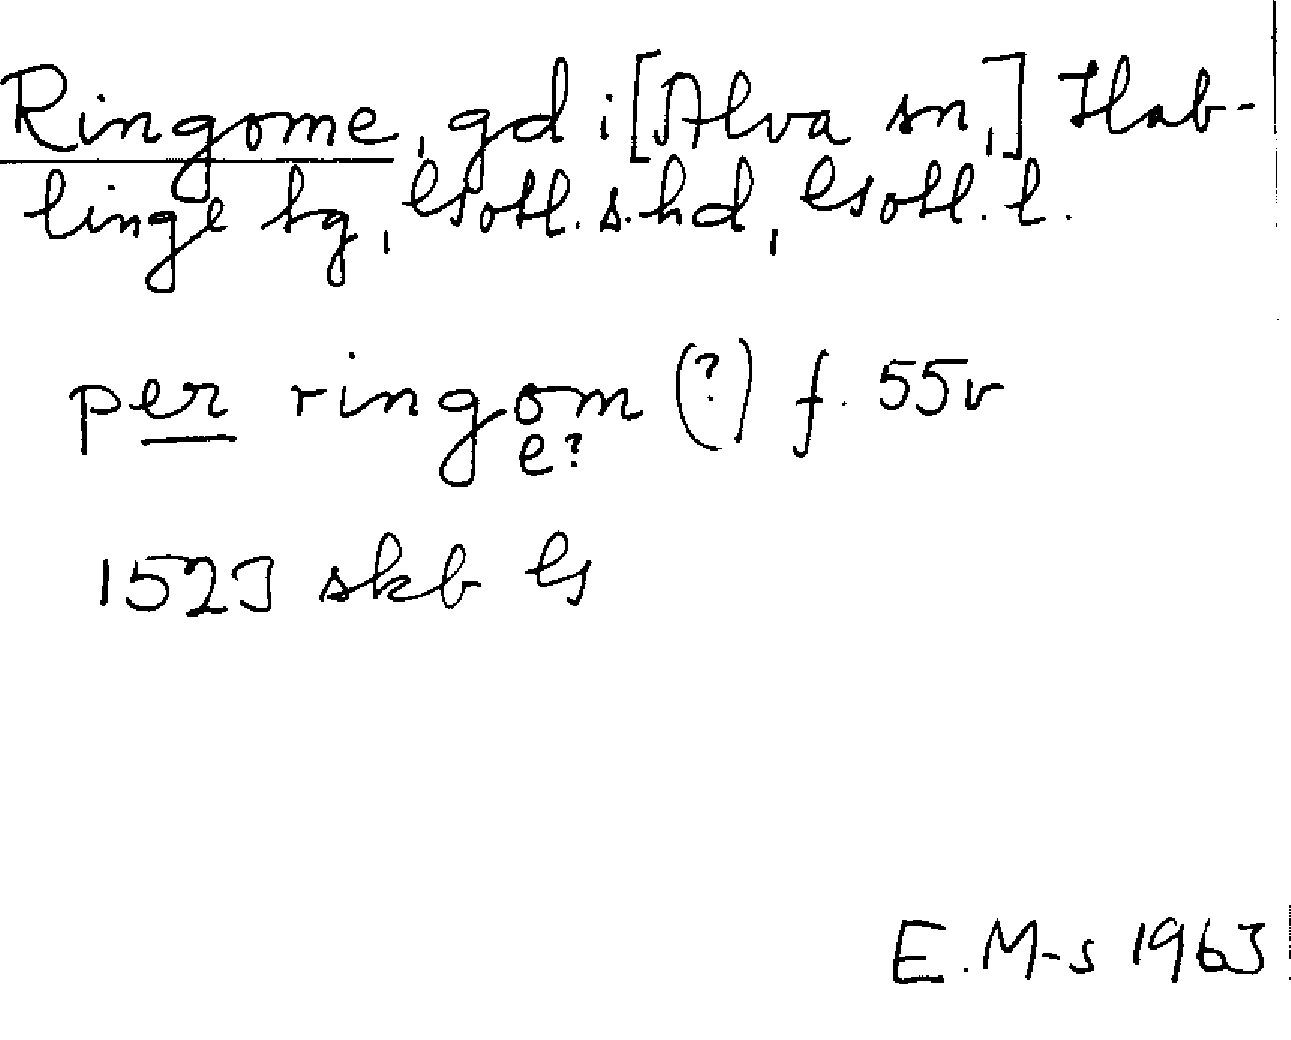 Ringome, gd i [Alva sn,] Hab-
linge tg, Gotl. s. hd, Gotl. l.
per ringom (?) f. 55v
e?
1523 skb G
E. M-s 1963